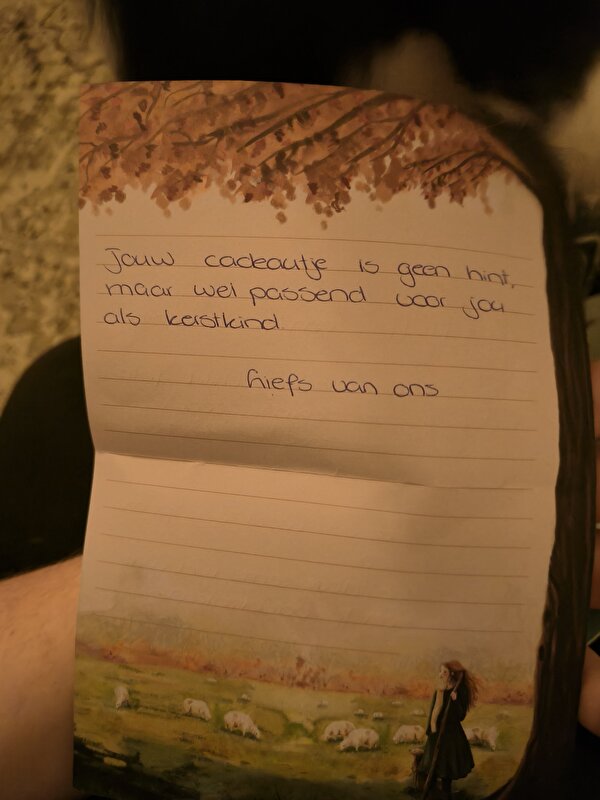 Jouw cadeautje is geen hint,
maar wel passend voor jou
als kerstkind.
liefs van ons